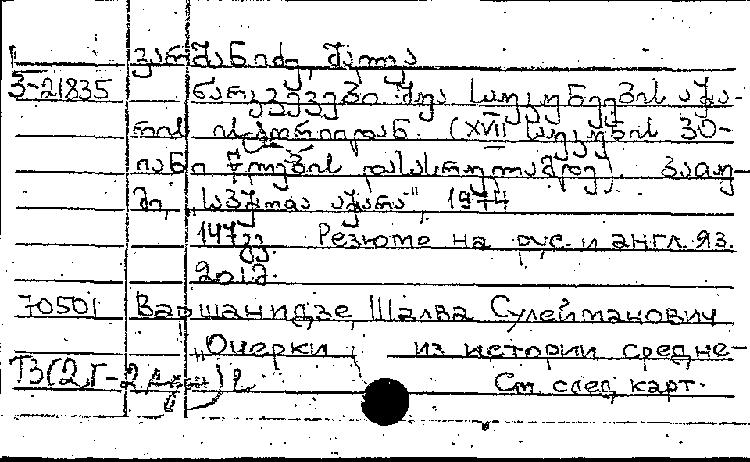 ვარშანიძე, შოთა
3-21835 ნარკვევები შუა საუკუნეების აჭა-
რის ისტორიიდან. (XVII საუკუნის 30-
იანი წლების დასასრულამდე). ბათუ-
მი, „საბჭოთა აჭარა", 1974
147 გვ. Резюме на рус. и англ. яз.
70501 Варшанидзе, Шалва Сулейманович
„Очерки из истории средне-
Т3(2Г- См. след. карт.